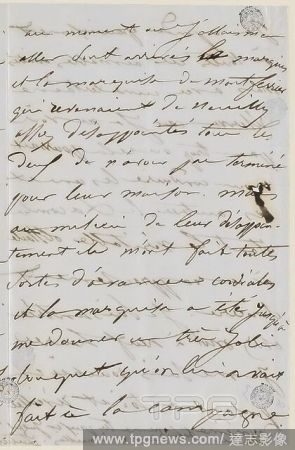 au moment où j'allais m'en
aller sont arrivés le marquis
et la marquise de Montferrier
qui revenaient de Neuilly
assez désappointés tous les
deux de n'avoir pas terminé
pour leur maison. mais
au milieu de leur désappoin-
tement ils m'ont fait toutes
sortes d'avances cordiales
et la marquise a été jusqu'à
me donner un très joli
bouquet qu'on lui avait
fait à la campagne
TPG
www.tpgnews.com/達志影像